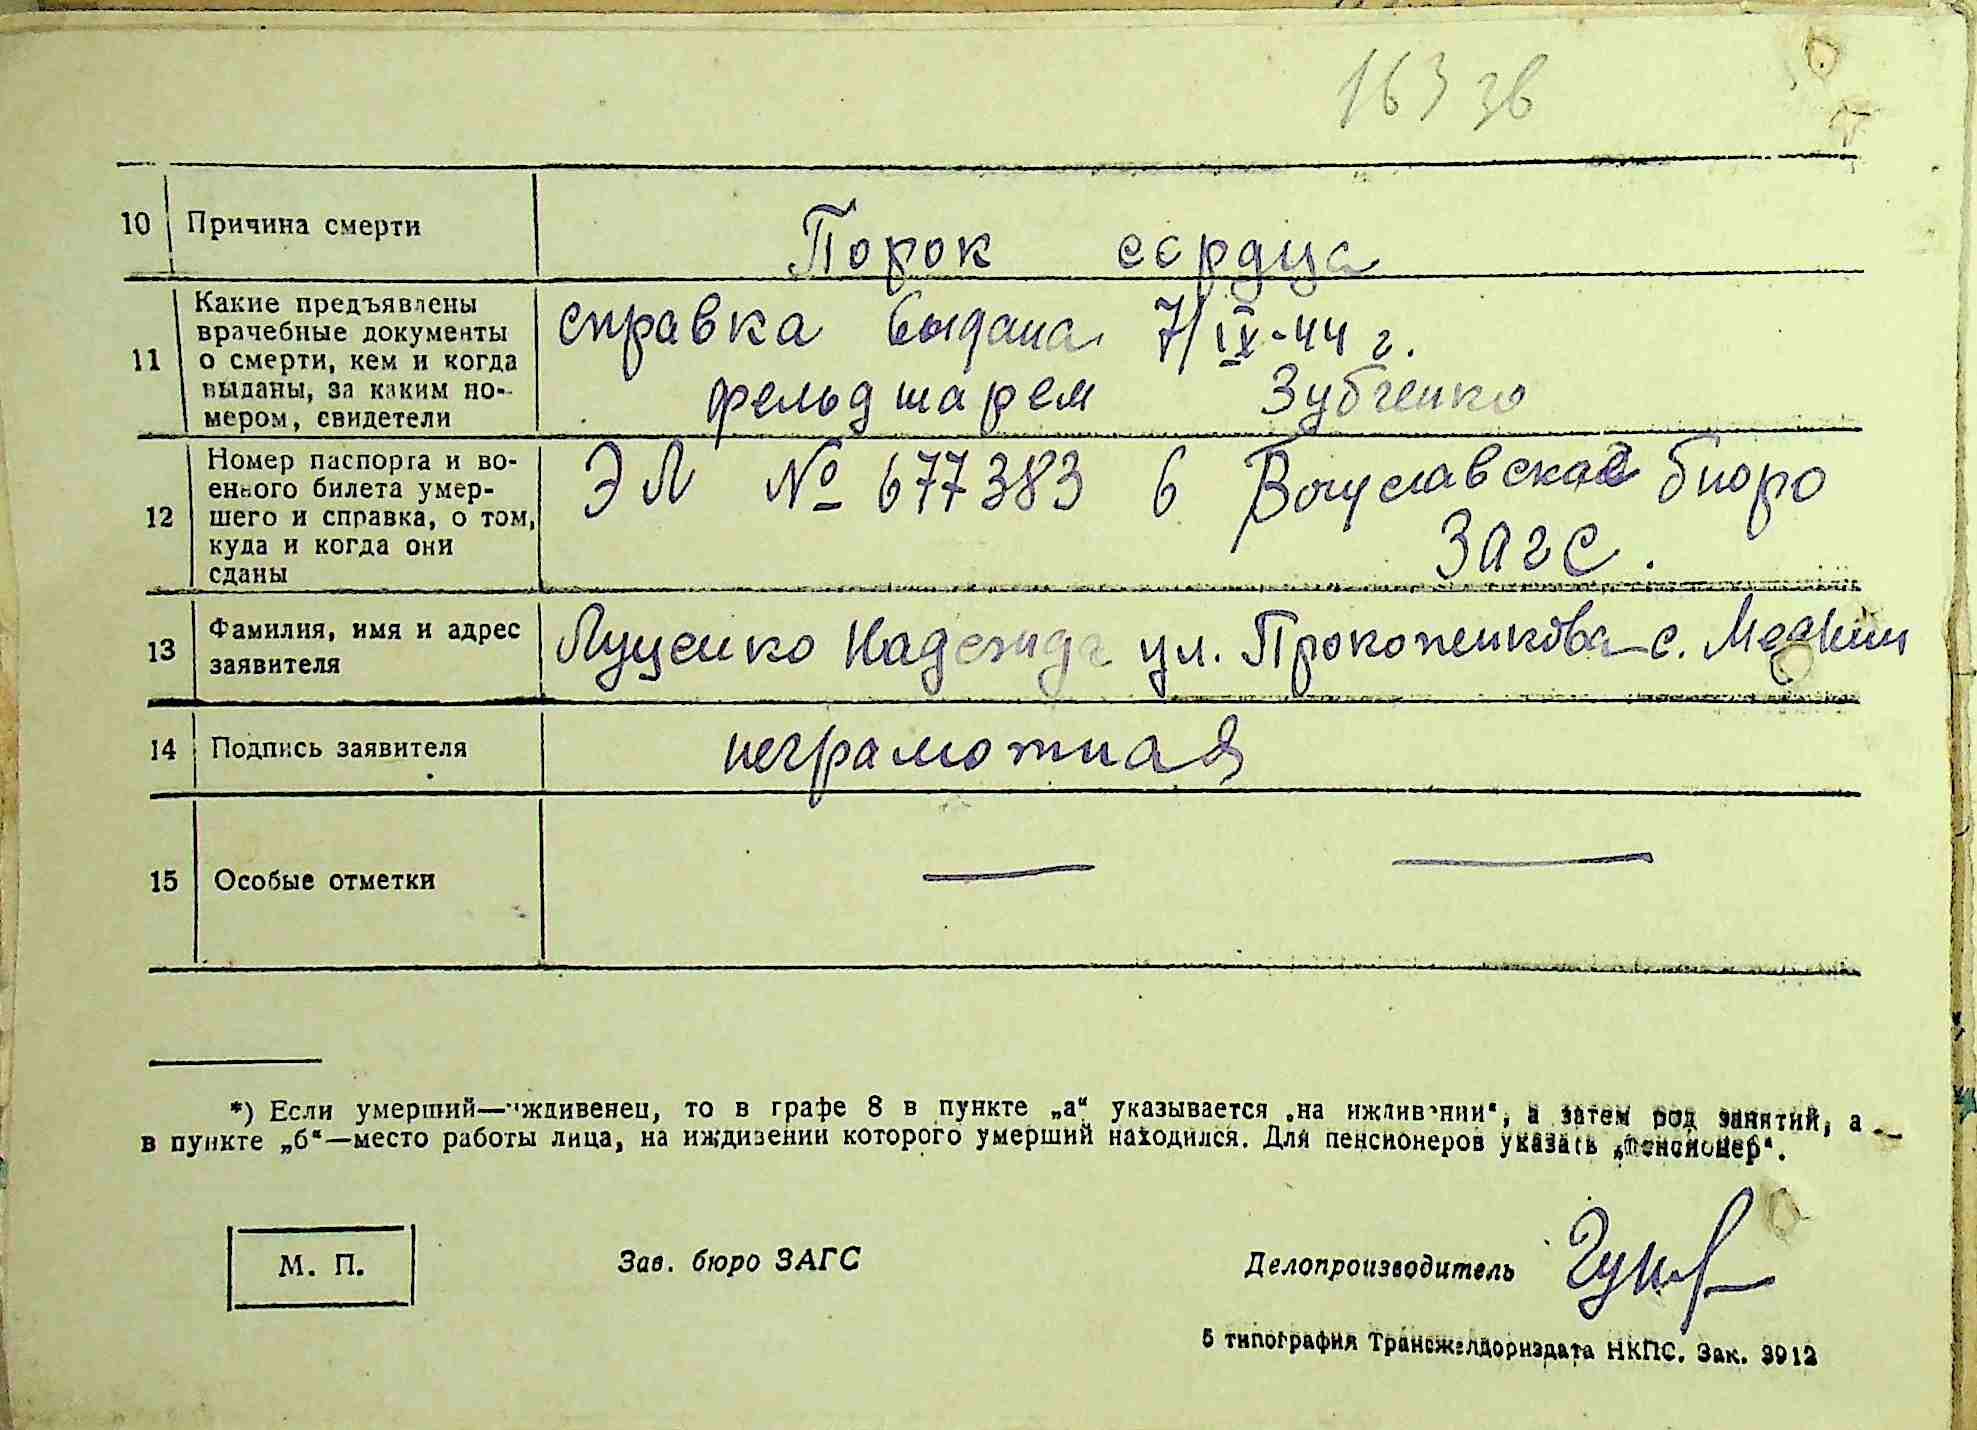 163 зв
10 Причина смерти Порок сердца
11 Какие предъявлены врачебные документы о смерти, кем и когда выданы, за каким но-
мером, свидетели
справка выдана 7/IX-44 г.
фельдшарем Зубченко
12 Номер паспорта и во-
енного билета умер-
шего и справка, о том,
куда и когда они
сданы
ЭЛ № 677383 в Богуславское бюро
ЗАГС.
13 Фамилия, имя и адрес
заявителя
Луценко Надежда ул. с.
14 Подпись заявителя неграмотная
15 Особые отметки — —
*) Если умерший—иждивенец, то в графе 8 в пункте „а“ указывается „на иждивении“, а затем род занятий, а
в пункте „б“—место работы лица, на иждивении которого умерший находился. Для пенсионеров указать „пенсионер“.
М. П. Зав. бюро ЗАГС Делопроизводитель
5 типография Трансжелдориздата НКПС. Зак. 3912